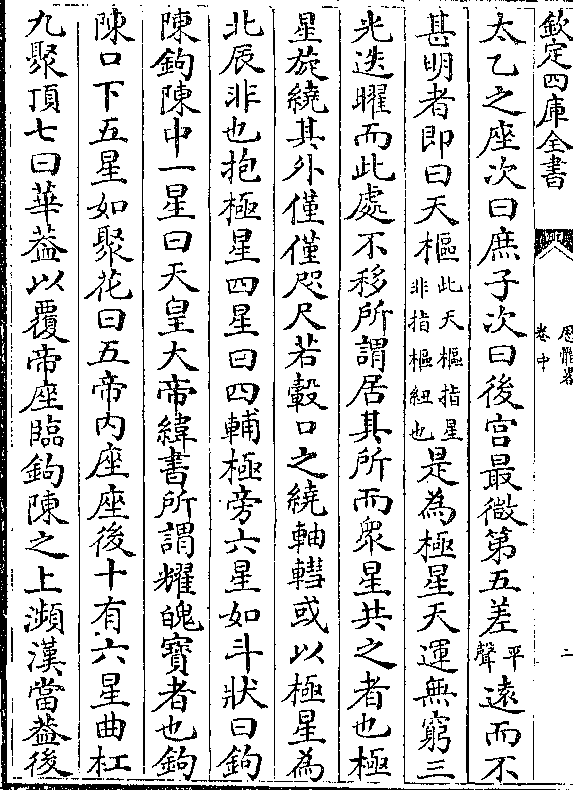 欽定四庫全書
思難畧
卷中
二
太乙之座次曰庶子次曰後宫最微第五差平聲逺而不
甚明者即曰天樞此天樞指星非指樞紐也是為極星天運無窮三
光迭曜而此處不移所謂居其所而衆星共之者也極
星旋繞其外僅僅咫尺若轂口之繞軸轊或以極星為
北辰非也抱極星四星曰四輔極旁六星如斗狀曰鉤
陳鉤陳中一星曰天皇大帝緯書所謂耀魄寶者也鉤
陳口下五星如聚花曰五帝内座座後十有六星曲杠
九聚頂七曰華葢以覆帝座臨鉤陳之上瀕漢當葢後